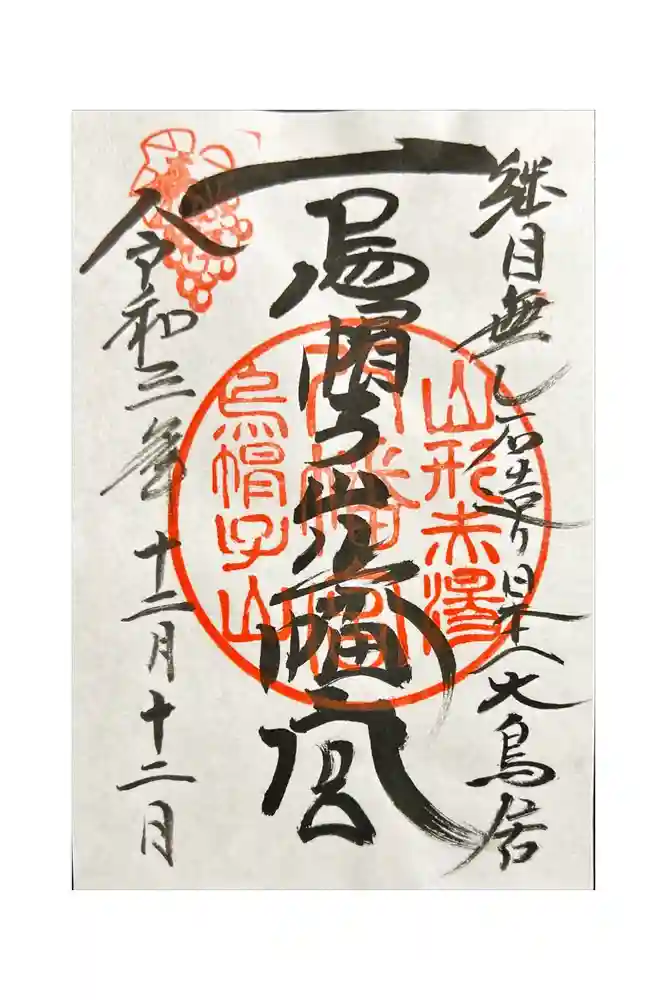 継目無し石造り日本一大鳥居
烏帽子山八幡宮
令和三年十二月十二月
山形赤湯
八幡宮
烏帽子山